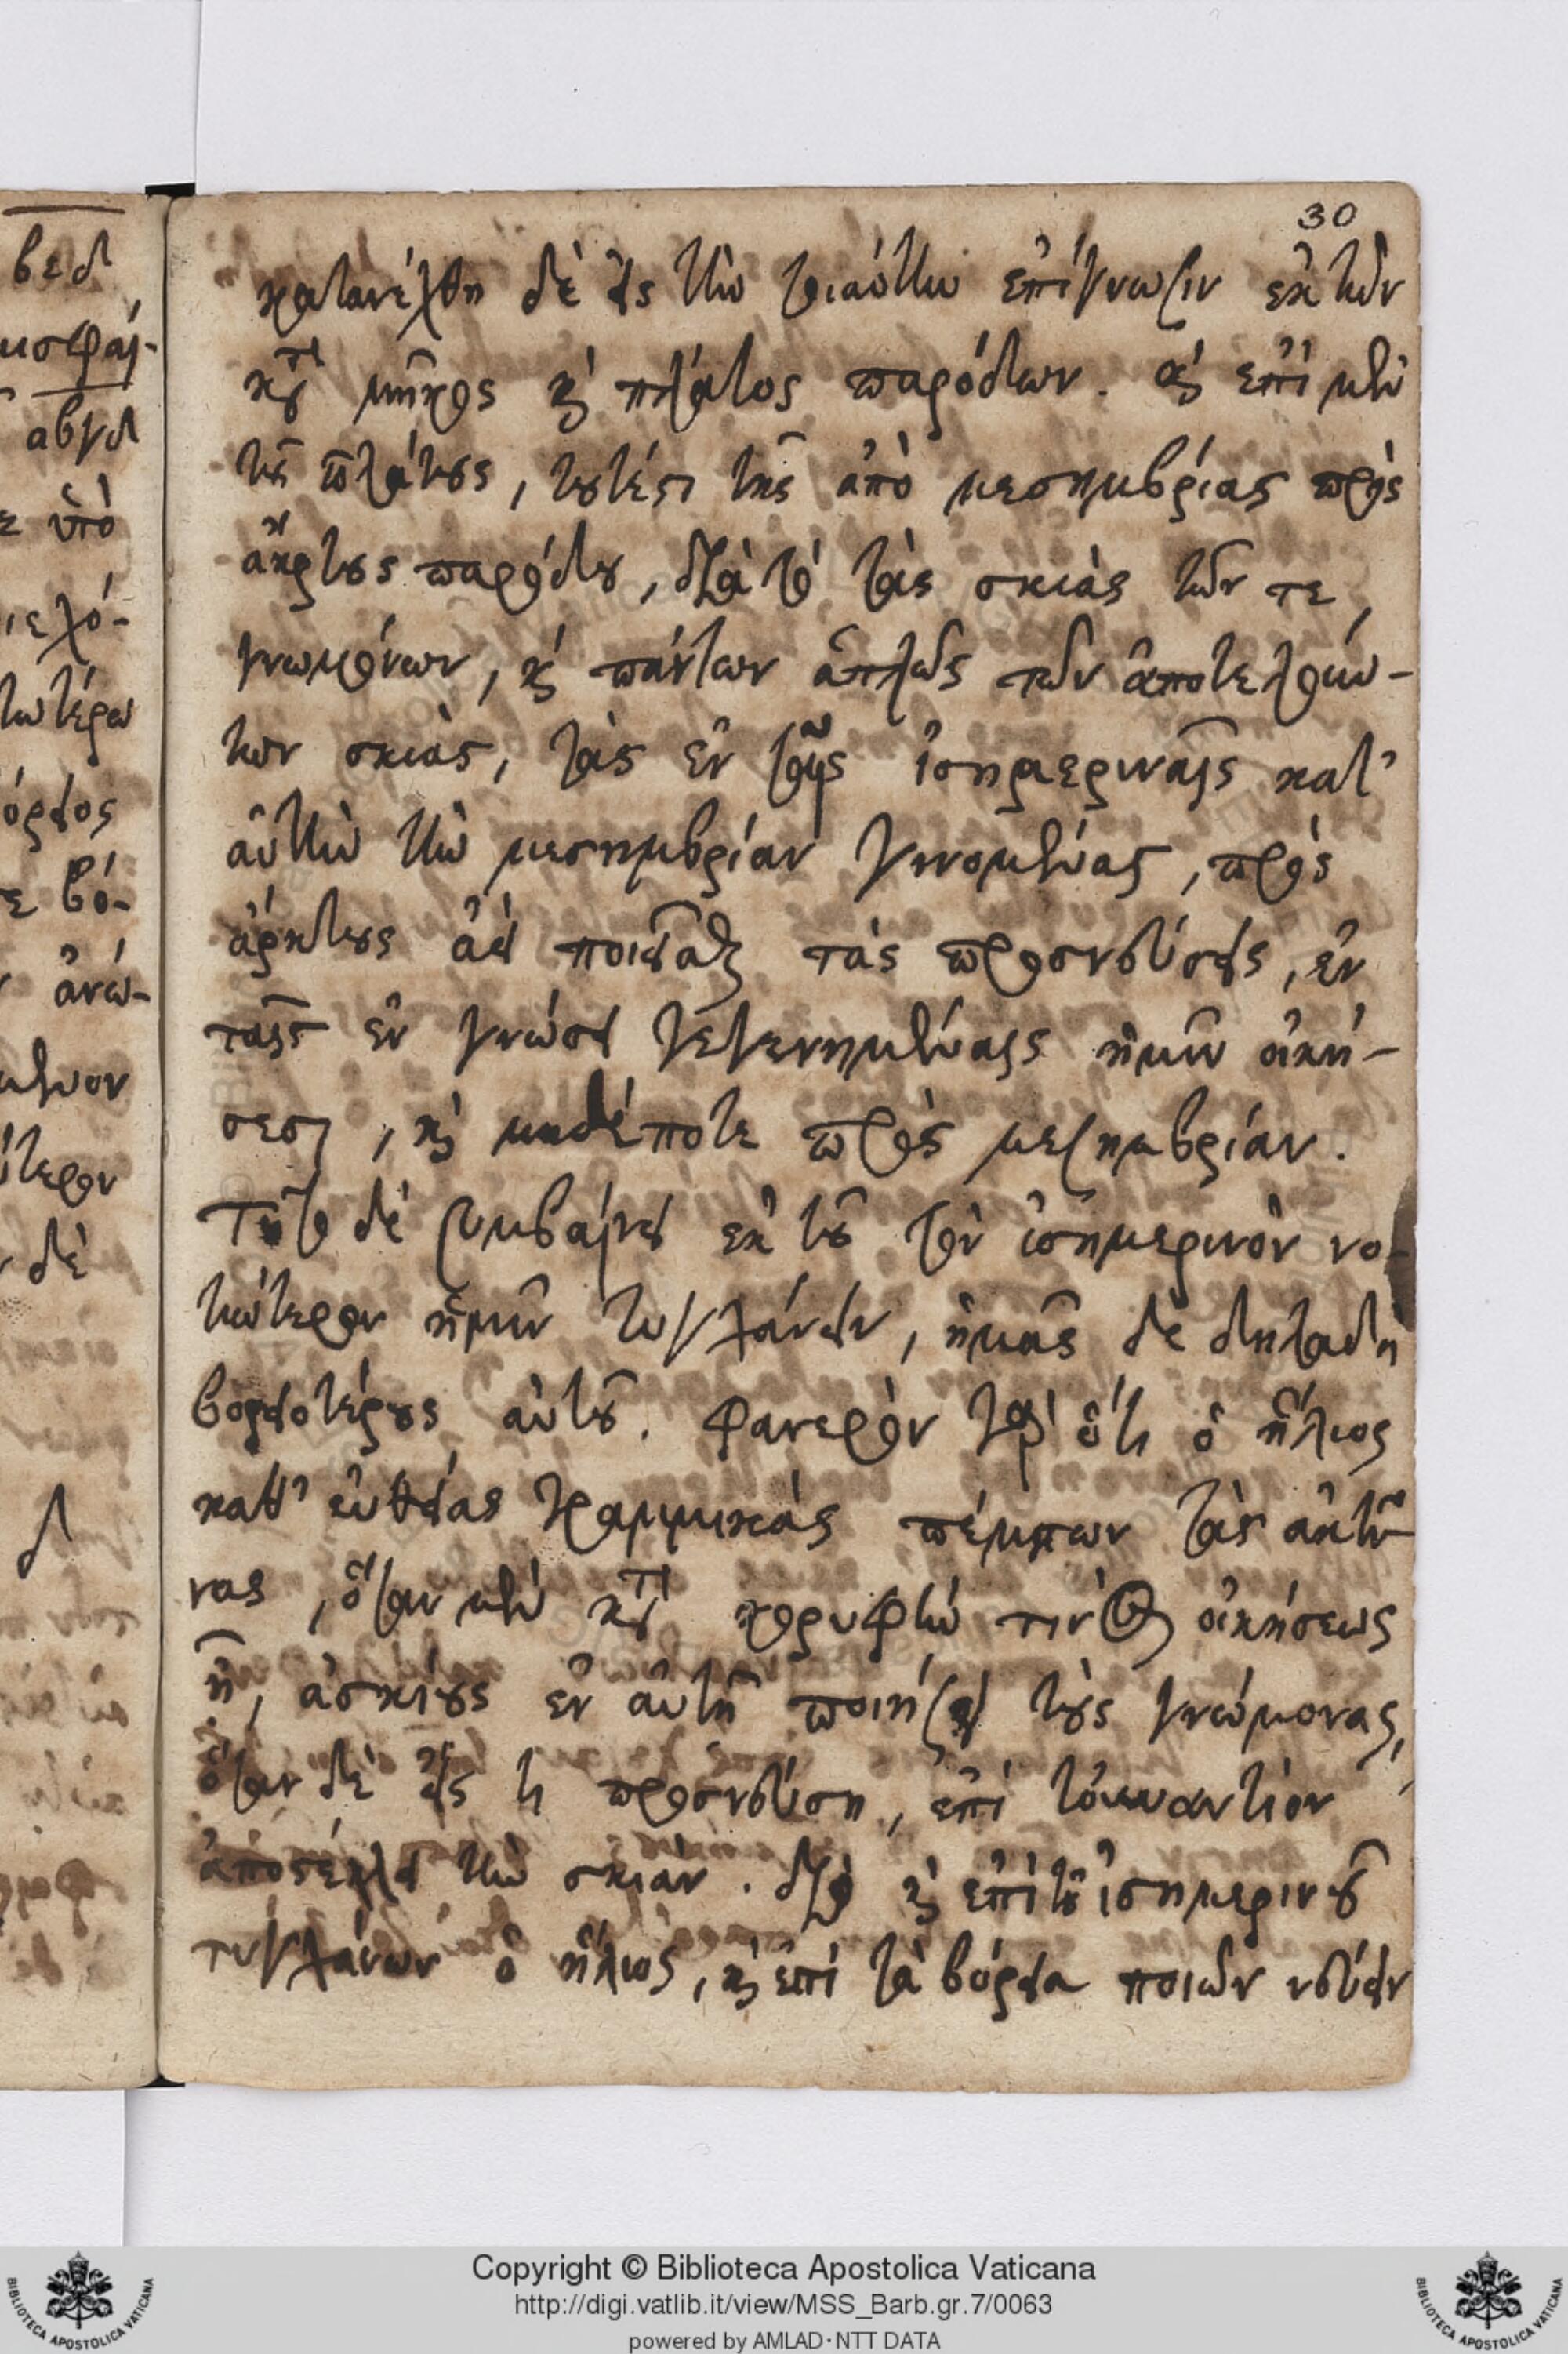 30
κατηνέχθη δὲ εἰς τὴν τοιαύτην ἐπίγνωσιν ἐκ τῶν
κατὰ μῆκος καὶ πλάτος παρόδων. καὶ ἐπὶ μὲν
τῆς πλάτους, τουτέστι τῆς ἀπὸ μεσημβρίας πρὸς
ἄρκτους παρόδου, διὰ τὸ τὰς σκιὰς τῶν τε,
γνωμόνων, καὶ πάντων ἁπλῶς τῶν ἀποτελούν-
των σκιὰς, τὰς ἐν ταῖς ἰσημεριναῖς κατ'
αὐτὴν τὴν μεσημβρίαν γινομένας, πρὸς
ἄρκτους ἀεὶ ποιεῖσθαι τὰς προσνεύσεις, ἐν
ταῖς ἐν γνώσει γεγενημέναις ἡμῖν οἰκή-
σεσι, καὶ μηδέποτε πρὸς μεσημβρίαν.
Τοῦτο δὲ συμβαίνει ἐκ τοῦ τὸν ἰσημερινὸν νο-
τιώτερον ἡμῖν τυγχάνειν, ἡμᾶς δὲ δηλαδὴ
βορειοτέρους αὐτοῦ. Φανερὸν γὰρ ὅτι ὁ ἥλιος
κατ' εὐθείας γραμμικὰς πέμπων τὰς ἀκτῖ-
νας, ὅταν μὲν κατὰ κορυφὴν τινὸς οἰκήσεως
ᾖ, ἀσκίους ἐν αὐτῇ ποιήσει τοὺς γνώμονας,
ὅταν δὲ εἴς τι προσνεύσῃ, ἐπὶ τοὐναντίον
ἀποστέλλει τὴν σκιάν. διὸ καὶ ἐπὶ τοῦ ἰσημερινοῦ
τυγχάνων ὁ ἥλιος, καὶ ἐπὶ τὰ βόρεια ποιῶν νεύειν
βεδ
αβγδ
ὑπὸ
ιεχό-
τωτέρω
όρειος
βό-
ἀνώ-
δὲ
δ
Copyright © Biblioteca Apostolica Vaticana
http://digi.vatlib.it/view/MSS_Barb.gr.7/0063
powered by AMLAD·NTT DATA
BIBLIOTECA APOSTOLICA VATICANA
BIBLIOTECA APOSTOLICA VATICANA